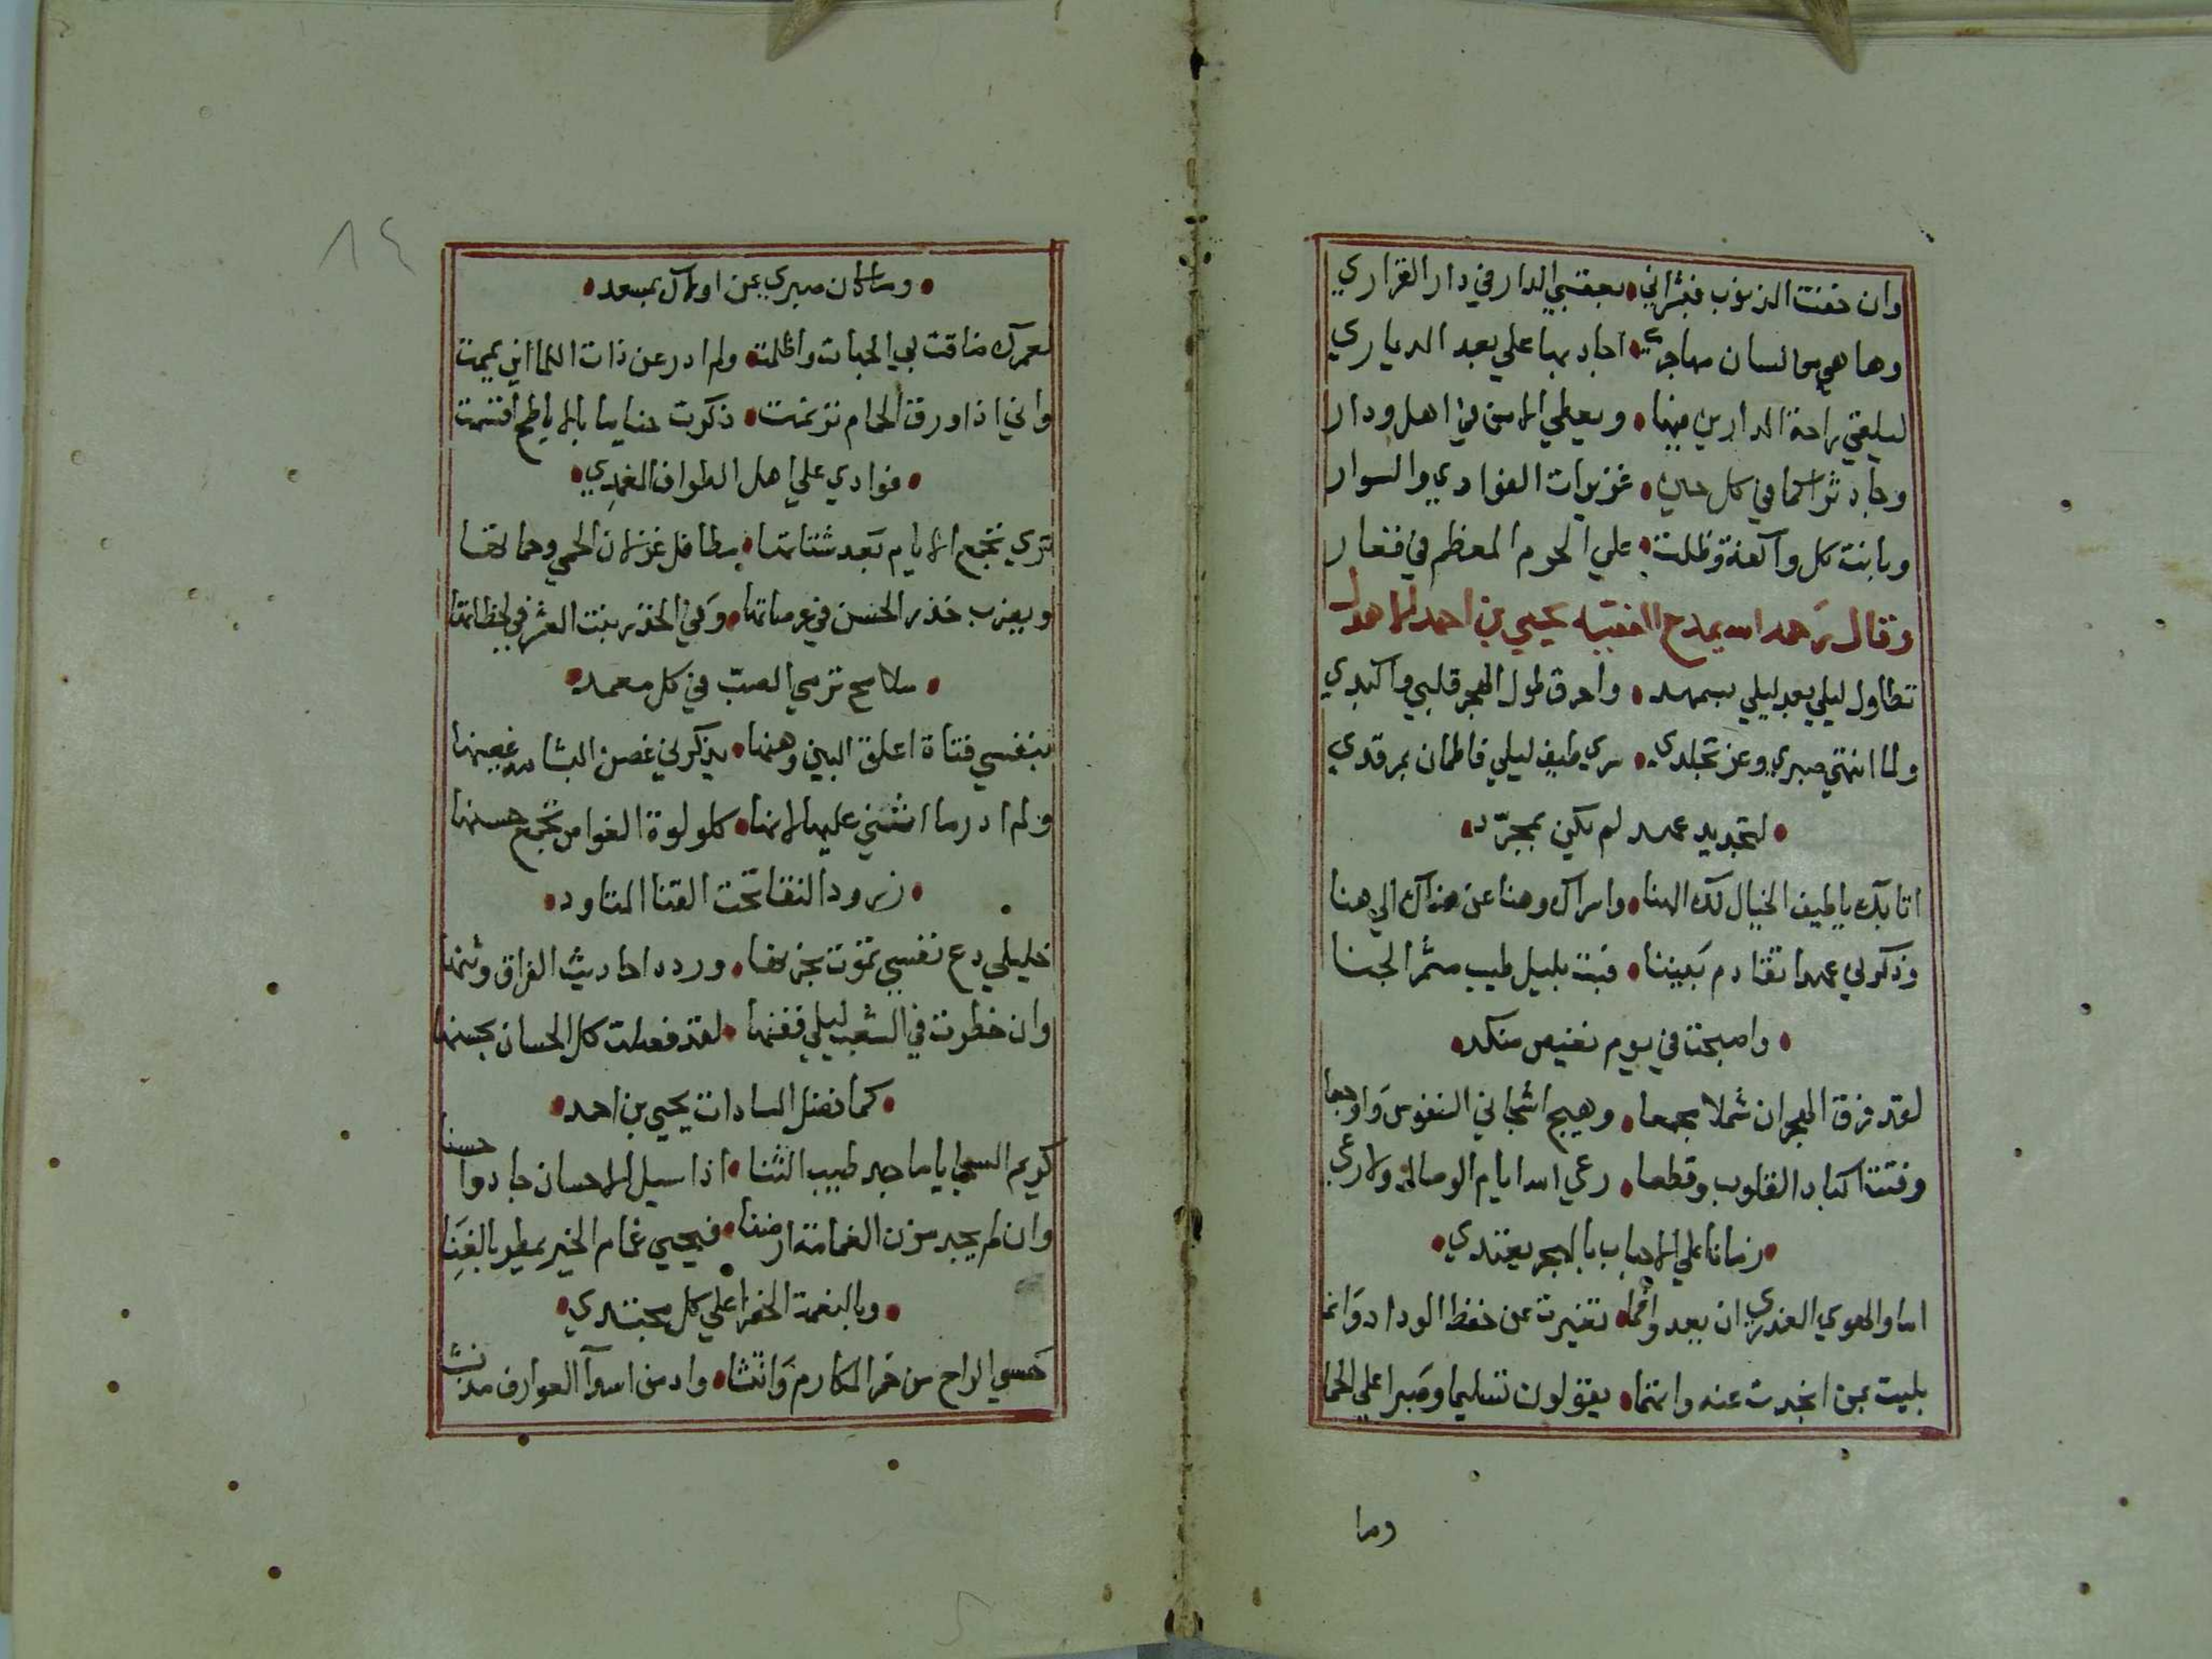 وان خفت الذنوب فبشراني • بعقبي الدار في دار القراري
وها هي من لسان مهاجري • اجاد بها علي بعد الدياري
ليلقي راحة الدارين فيها • ويعطي الامن في اهل ودار
وجاد ثراكما في كل حين • غزيرات الغوادي والسوار
وبانت كل واكفة وظلت • علي الحرم المعظم في قفار
وقال رحمه الله يمدح الفقيه يحيي بن احمد الاهدل
تطاول ليلي بعد ليلي بسهمد • واحرق طول الهجر قلبي واكبدي
ولما انتهي صبري وعز تجلدي • سري طيف ليلي فاطمان بمرقدي
• لتجديد عهد لم يكن بمجرد •
اتا بك يا طيف الخيال لك الهنا • واسراك وهنا عن هناك الي هنا
وذكرني عهدا تقادم بيننا • فبت بليل طيب مثمر الجنا
• واصبحت في يوم نغيص منكد •
لقد فرق الهجران شملا مجمعا • وهيج اشجاني النفوس واوجعا
وفتت اكباد القلوب وقطعا • رعي الله ايام الوصال ولا رعي
• زمانا علي الاحباب بالهجر يعتدي •
اما والهوي العذري ان بعد وانما • تغيرت عن حفظ الوداد وانما
بليت بمن انجدت عنه واتهما • يقولون تسليما وصبرا علي الحما
وما
١٤
• وما كان صبري عن اولاك بمسعد •
لعمرك ضاقت بي الجهات واظلمت • ولم ادر عن ذات اللما اين يممت
واني اذا ورق الحمام ترنمت • ذكرت حبايبا بالاباطح اقسمت
• فوادي علي اهل الطواف المغمدي •
تري تجمع الايام بعد شتاتها • مطافل غزلان الحمي وحماتها
ويعزب خذر الحسن في عرصاتها • وفي الخذر بنت العشر في لحظاتها
• سلامح ترمي الصب في كل معمد •
بنفسي فتاة اعلق البين وهنها • يذكرني غصن البشام غصينها
ولم ادر ما اثني عليها لانها • كلولوة الغواص تجمع حسنها
• زرود النقا تحت القنا المتاود •
خليلي دع نفسي تموت بحزنها • وردد احاديث الفراق وثنها
وان خطرت في الشعب ليلي فغنها • لقد فضلت كل الحسان بحسنها
• كما فضل السادات يحيي بن احمد •
كريم السجايا ماجد طيب الثنا • اذا سيل الاحسان جادوا حسنا
وان لم يجد مزن الغمامة ارضنا • فيحيي غمام الخير يمطر بالغنا
• وبالنعمة الخضرا علي كل مجتدي •
حسي الراح من خمر المكارم وانتشا • وادمن اسوآ العوارف مذ نشا